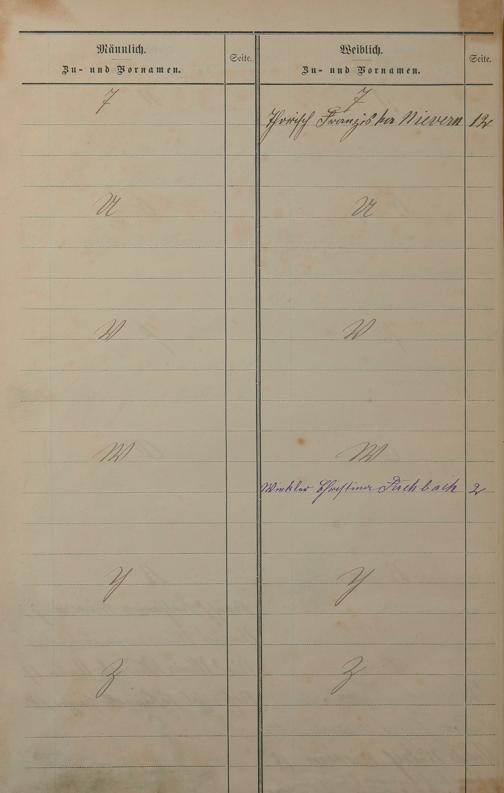 Männlich.
Zu- und Vornamen.
Seite.
Weiblich.
Zu- und Vornamen.
Seite.
T
T
Franziska Nievern 12
U
U
V
V
W
W
Winkler Christina Fachbach 2
Y
Y
Z
Z